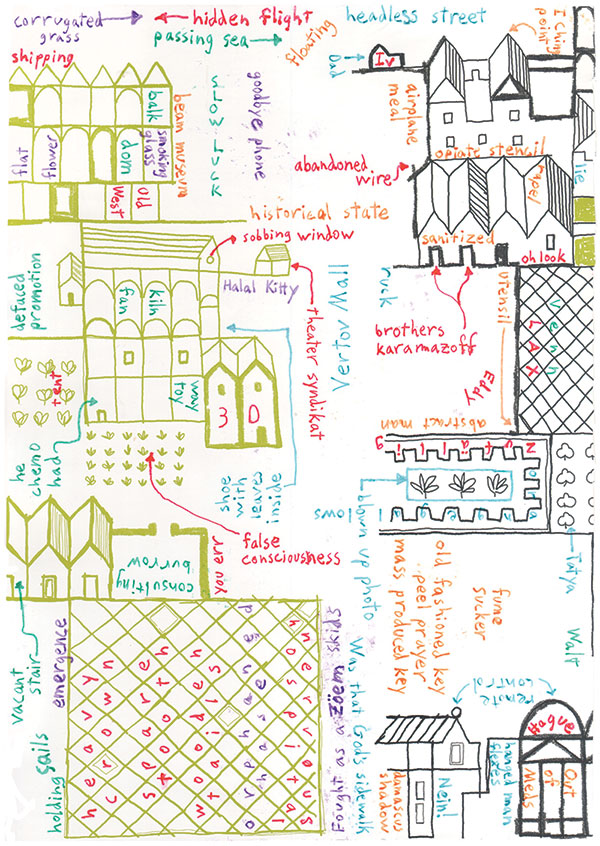 corrugated
grass
hidden flight
passing sea
floating
headless street
I Ching
point
shipping
Dad
Iv
airplane
meal
opiate stencil
abandoned
wire
lie
balk
smoking
glass
beam museum
SLOW LUCK
goodbye phone
flat
flower
dom
West
Old
historical state
sobbing window
sanitized
oh look
Halal Kitty
theater syndikat
Vertov Mall
ruk
brothers
karamazoff
utensil
Eddy
abstract man
LAX
defaced
promotion
kiln
fan
way
toy
3 D
tent
he
chemo
had
shoe
with
leaves
inside
false
consciousness
blown up photo
Tatya
Walt
consulting
burrow
you err
fume
sucker
old fashioned key
peel prayer
mass produced key
vacant
stair
emergence
holding
sails
Fought as a zöem skids
Was that God's sidewalk
remote
control
Hague
Out
of
Meds
hanged man
flexes
Nein!
damascus
shadow